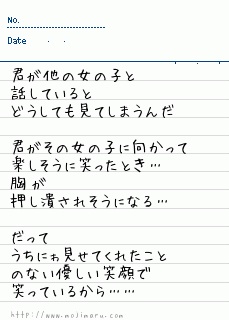 No.
Date . .
君が他の女の子と
話していると
どうしても見てしまうんだ
君がその女の子に向かって
楽しそうに笑ったとき…
胸が
押し潰されそうになる…
だって
うちにゎ見せてくれたこと
のない優しい笑顔で
笑っているから……
http://www.mojimaru.com